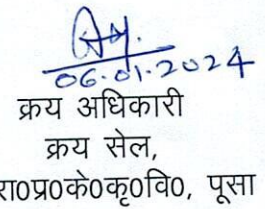 06.01.2024
क्रय अधिकारी
क्रय सेल,
रा0प्र0के0कृ0वि0, पूसा